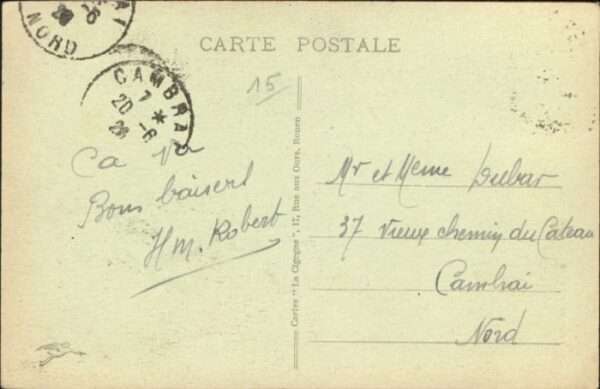 NORD
CARTE POSTALE
CAMBRAI
7 *
20 -6
15
Ca va
Bons baisers
HM. Robert
Cartes "La Cigogne", 17, Rue aux Ours, Rouen
Mr et Meme Dubar
37 vieux chemin du Câteau
Cambrai
Nord